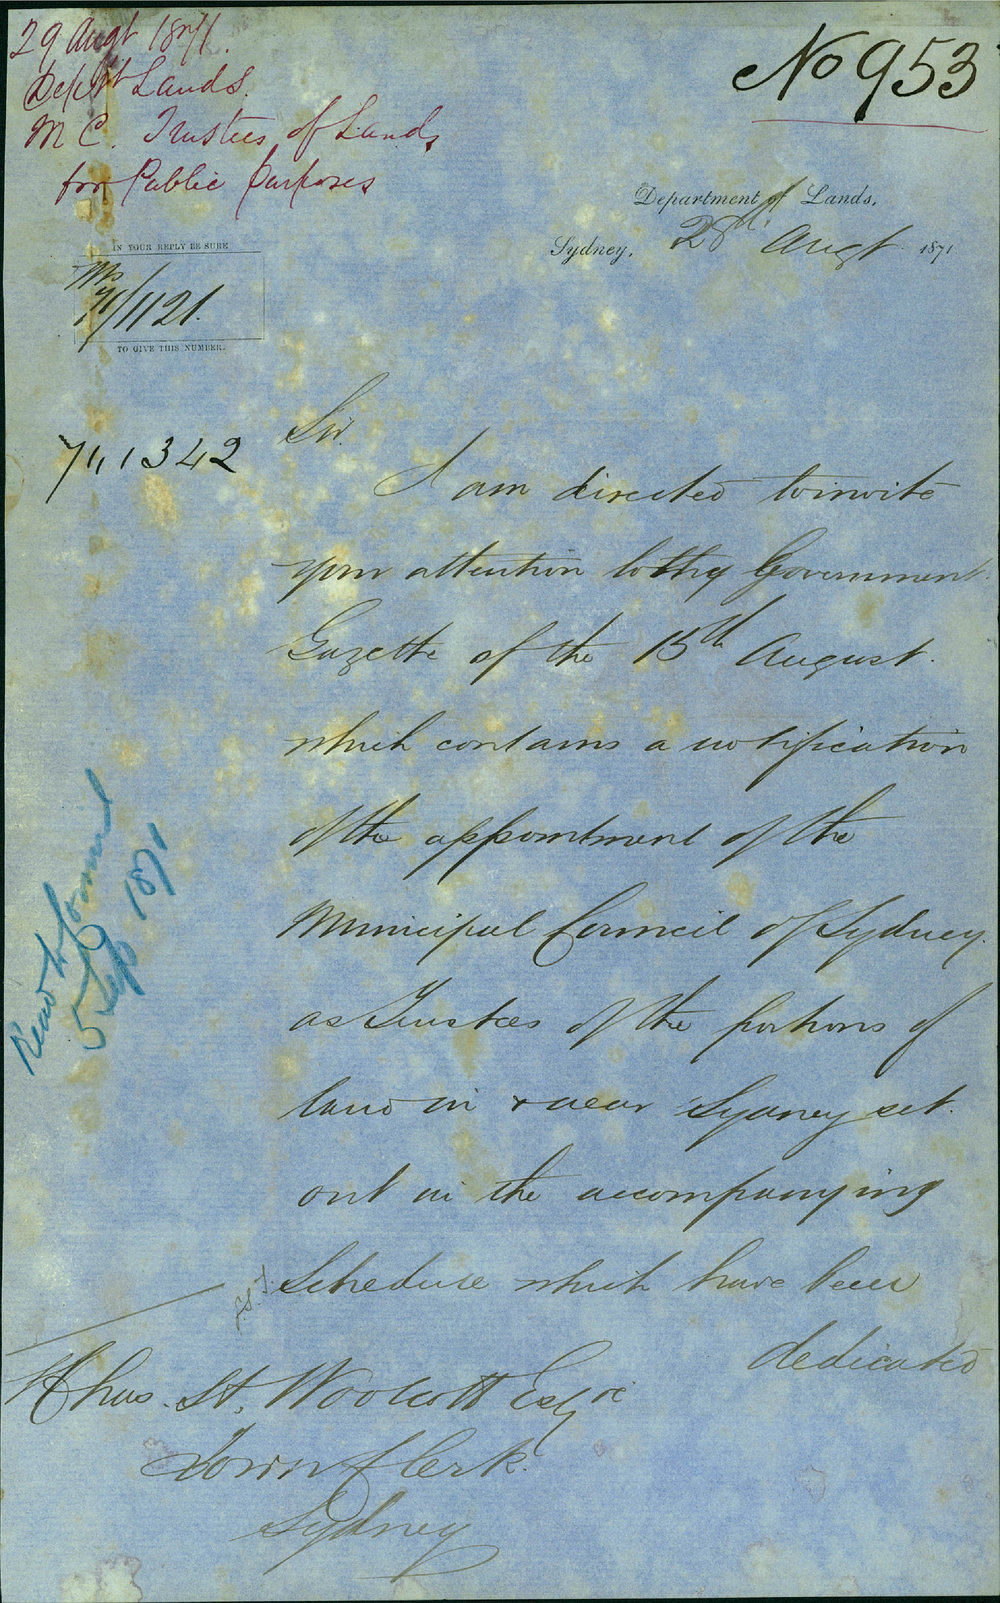 29 Augt 1871.
Dept Lands.
M C. Trustees of Lands
for Public Purposes
No 953
Department of Lands,
Sydney, 28th Augt 1871
IN YOUR REPLY BE SURE
71/1121.
TO GIVE THIS NUMBER.
71,1342
Sir.
I am directed to invite
your attention to the Government
Gazette of the 15th August.
which contains a notification
of the appointment of the
Municipal Council of Sydney.
as Trustees of the portions of
land in & near Sydney set.
out in the accompanying
Schedule which have been
dedicated
Read to Council
5 Sep 1871
Chas. St. Woolcott Esqre
Town Clerk.
Sydney